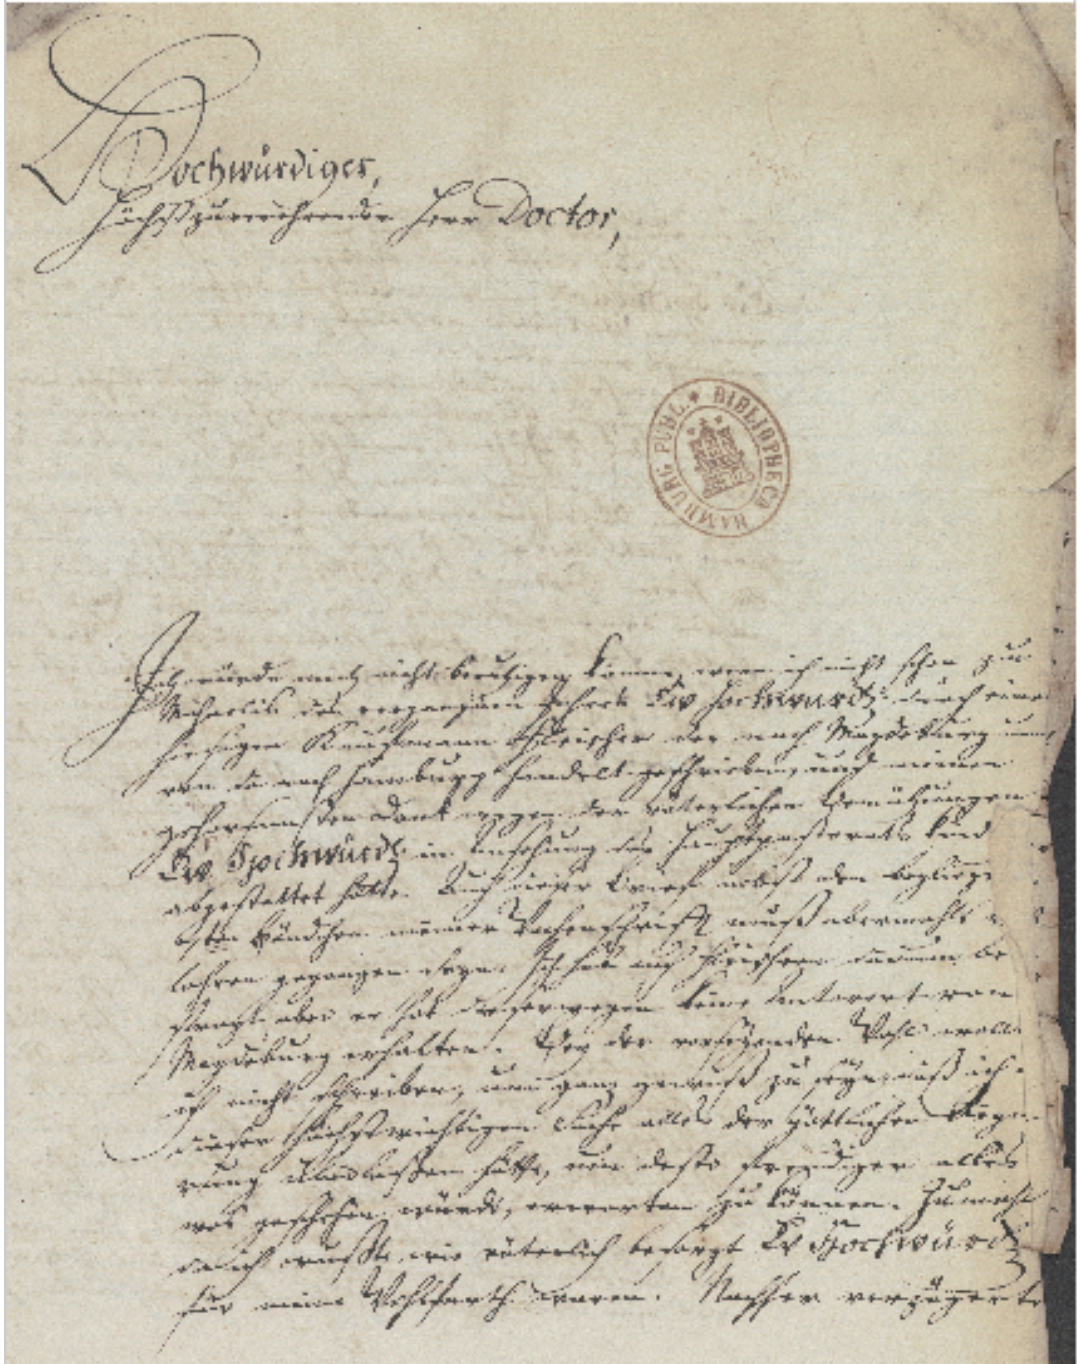 Hochwürdiger,
Höchstzuverehrender Herr Doctor,
HAMBURG PUBL. * BIBLIOTHECA
Ich würde mich nicht beruhigen können, wenn ich nicht schon zu
Michaelis des vergangnen Jahres Ew Hochwürd. durch einen
hiesigen Kaufmann Fleischer der nach Magdeburg und
von da nach Hamburg handelt geschrieben, und meinen
gehorsamsten Dank wegen der väterlichen Bemühungen
Ew. Hochwürd. in Ansehung des Hauptpastorats
abgestattet hätte. Auch dieser Brief nebst dem
sten Bändchen meiner Wochenschrift muß abermahls
lohren gegangen seyn. Ich habe auch Fleischern darum be
fragt, aber er hat deswegen keine Antwort von
Magdeburg erhalten. Bey der Wahl wollte
ich nicht schreiben, um ganz gewiß zu seyn, daß ich
dieser höchstwichtigen Sache alles der göttlichen Regie
rung überlaßen hätte, um desto freudiger alles
was geschehen würde, erwarten zu können. Zumahl
da ich wußte wie väterlich besorgt Ew Hochwürd.
für meine Wohlfarth waren. Nachher verzögerte